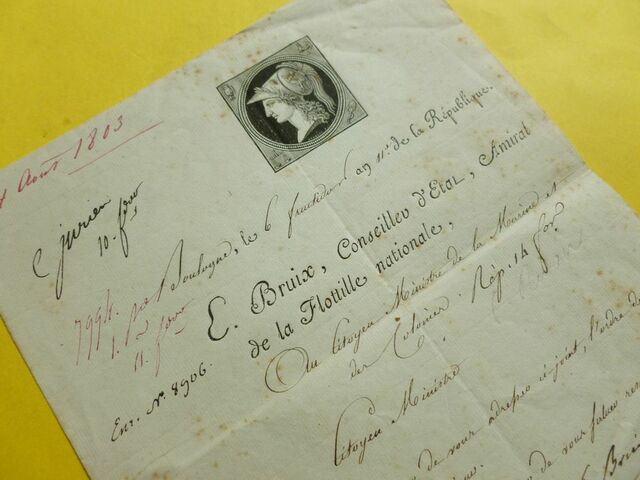 Août 1803
C jurien
10. for
7994.
Boulogne, le 6 fructidor an 11.e de la République.
E. Bruix, Conseiller d'État, Amiral
de la Flottille nationale,
Au Citoyen Ministre de la Marine et
des Colonies. Rép. 14 for
Enr. N.º 8906.
Citoyen Ministre
de vous adresser ci-joint, l'ordre de
de vous faire